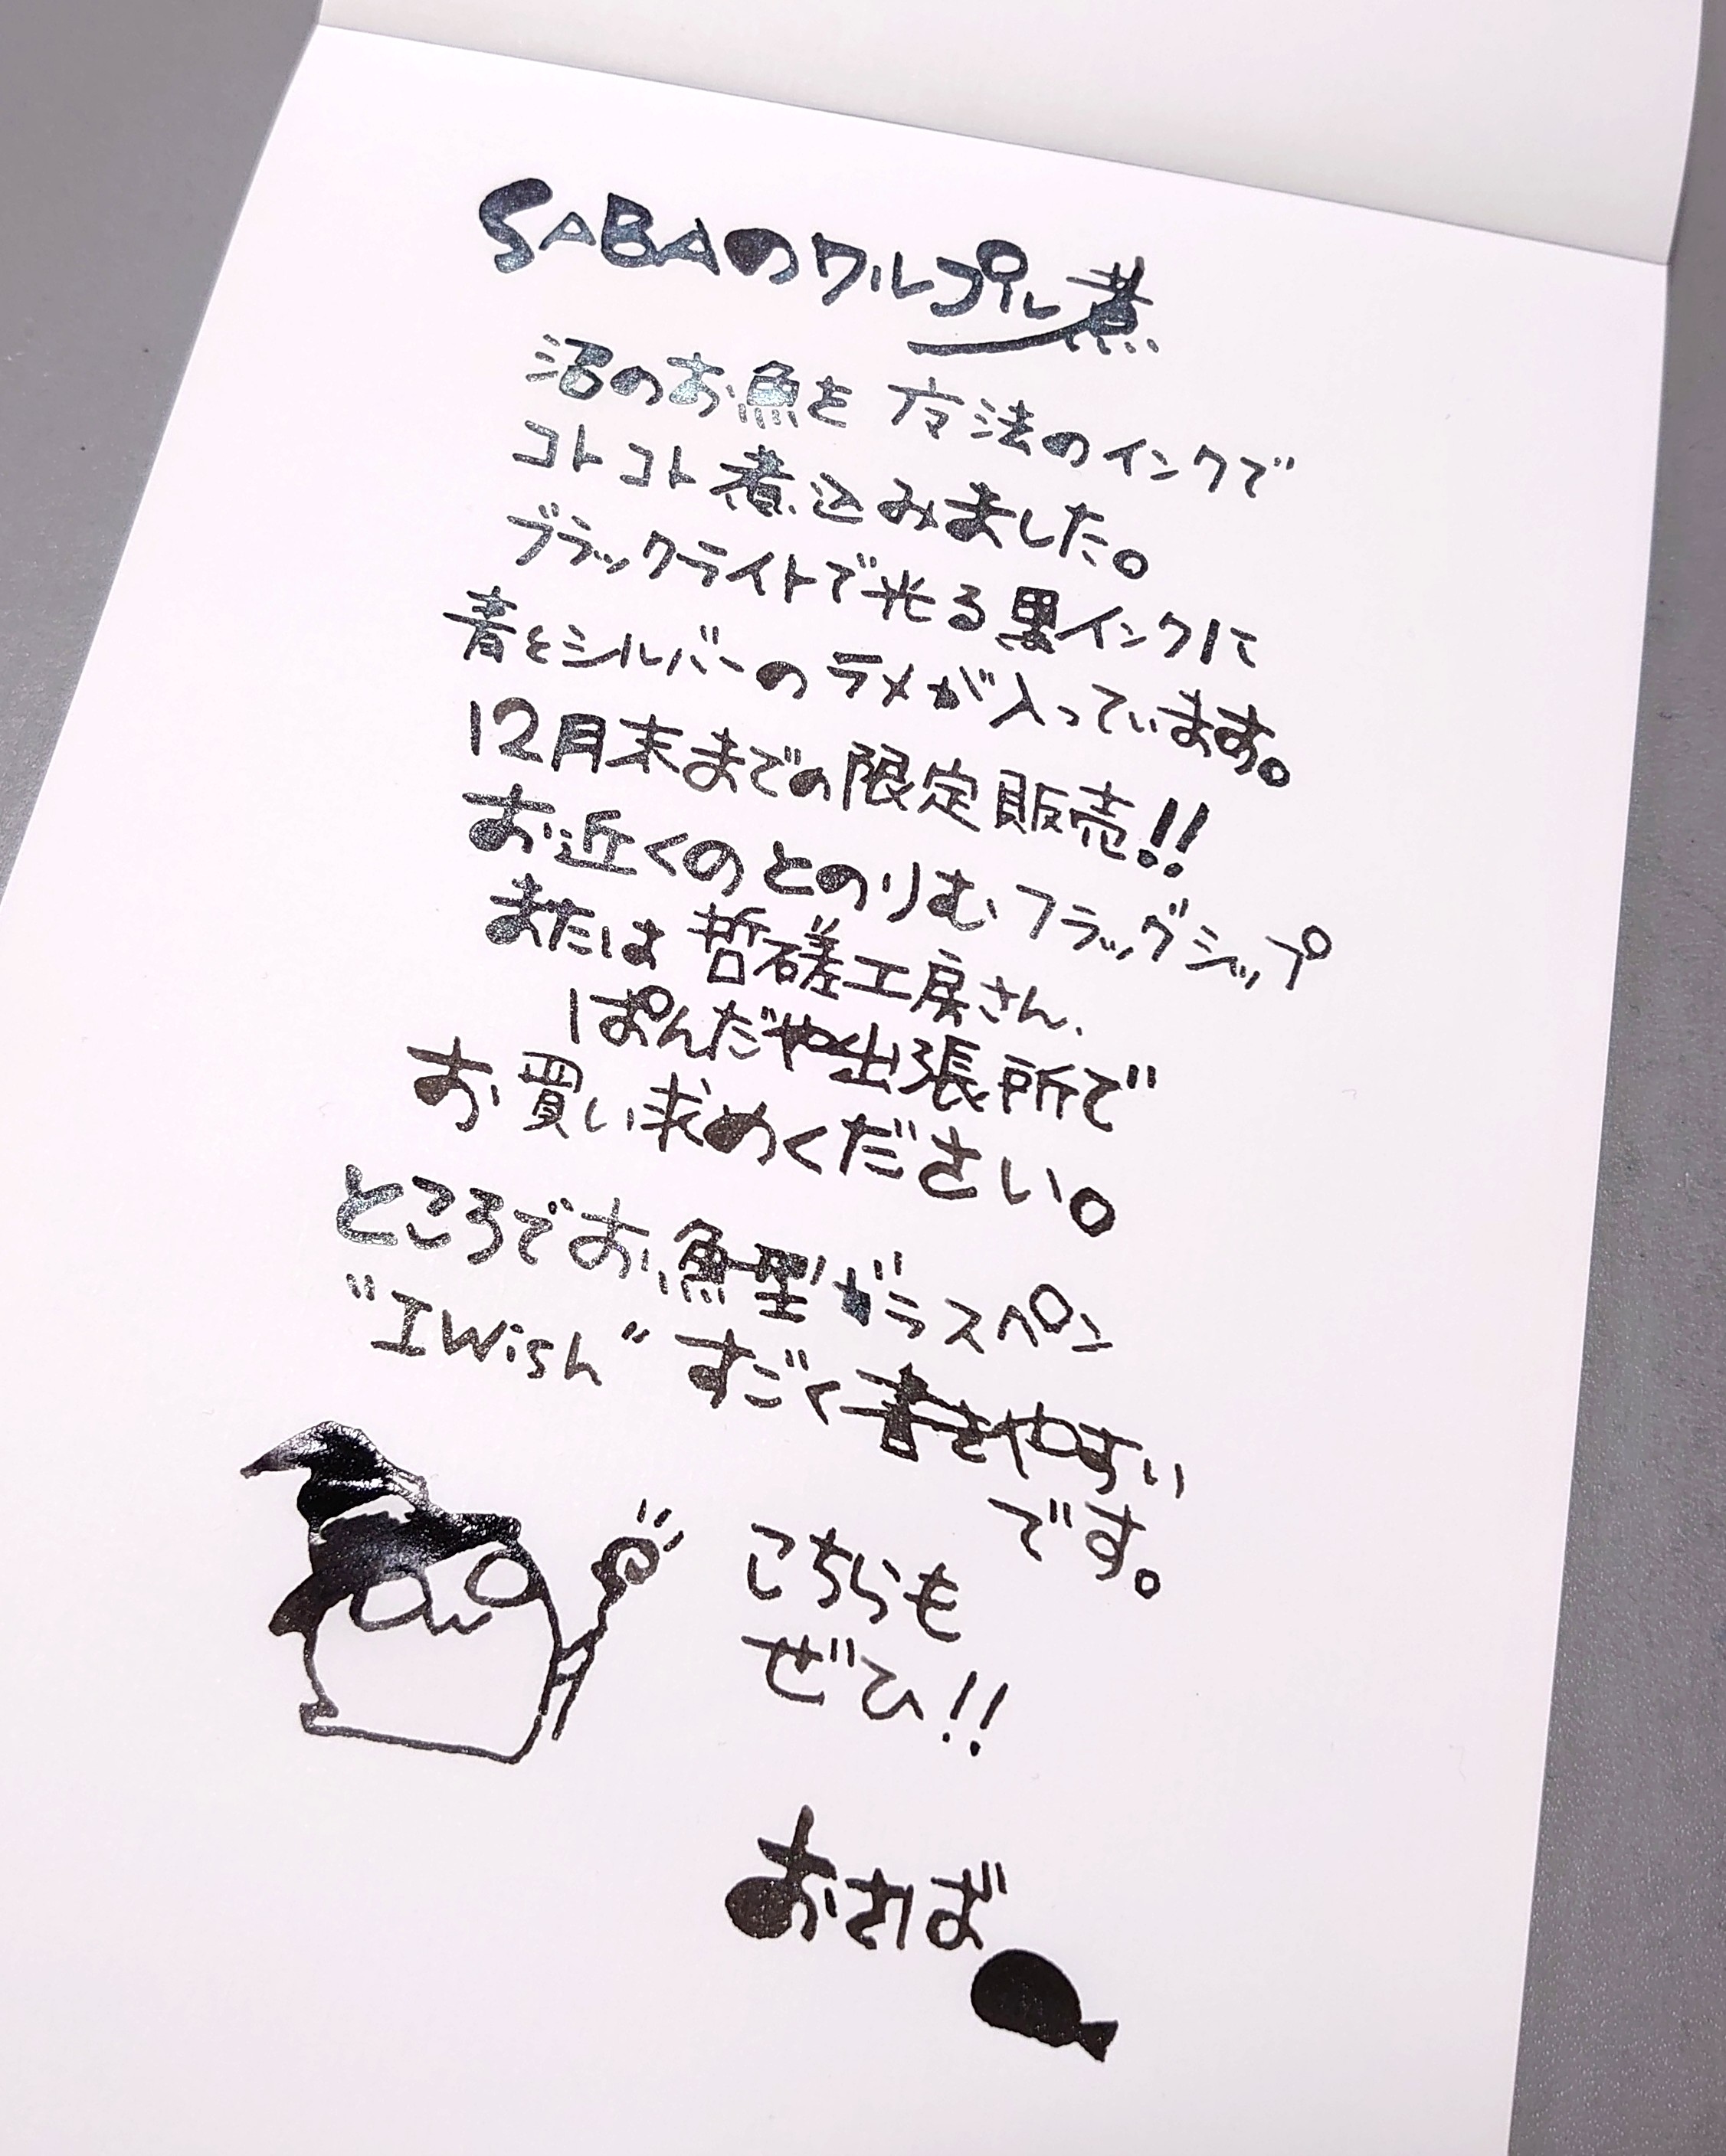 SABAのワルプル煮
沼のお魚を 魔法のインクで
コトコト煮込みました。
ブラックライトで光る黒インクに
青とシルバーのラメが入っています。
12月末までの限定販売!!
お近くのとのりむフラッグシップ
または 哲磋工房さん、
ぱんだや出張所で
お買い求めください。
ところでお魚型ガラスペン
"I Wish" すごく書きやすい
です。
こちらも
ぜひ!!
おさば